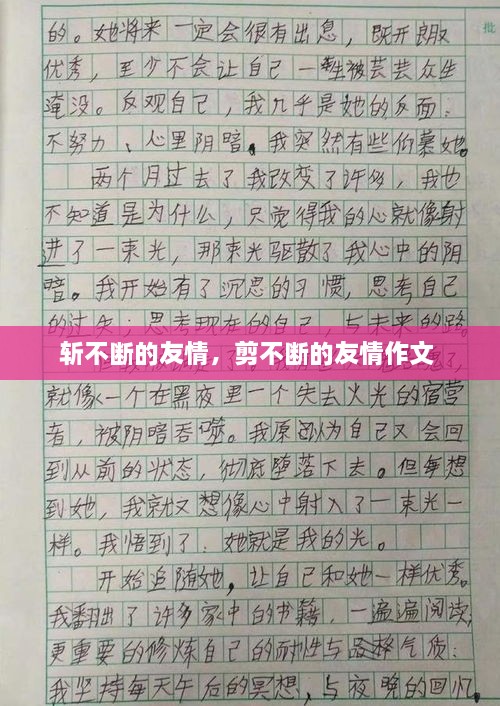 的。她将来一定会很有出息，既开朗又
优秀，至少不会让自己一生被芸芸众生
淹没。反观自己，我几乎是她的反面：
不努力、心里阴暗。我突然有些仰慕她。
两个月过去了我改变了许多，我也
不知道是为什么，只觉得我的心就像射
进了一束光，那束光驱散了我心中的阴
暗。我开始有了沉思的习惯，思考自己
的过失；思考现在的自己，与未来的路。
斩不断的友情，剪不断的友情作文
就像一个在黑夜里一个失去火光的宿营
者，被阴暗吞噬。我原以为自己又会回
到从前的状态，彻底堕落下去。但每想
到她，我就又想像心中射入了一束光一
样。我悟到了：她就是我的光。
开始追随她，让自己和她一样优秀。
我翻出了许多家中的书籍，一遍遍阅读，
更重要的修炼自己的耐性与品格气质：
我坚持每天午后的冥想，与夜晚的回忆，